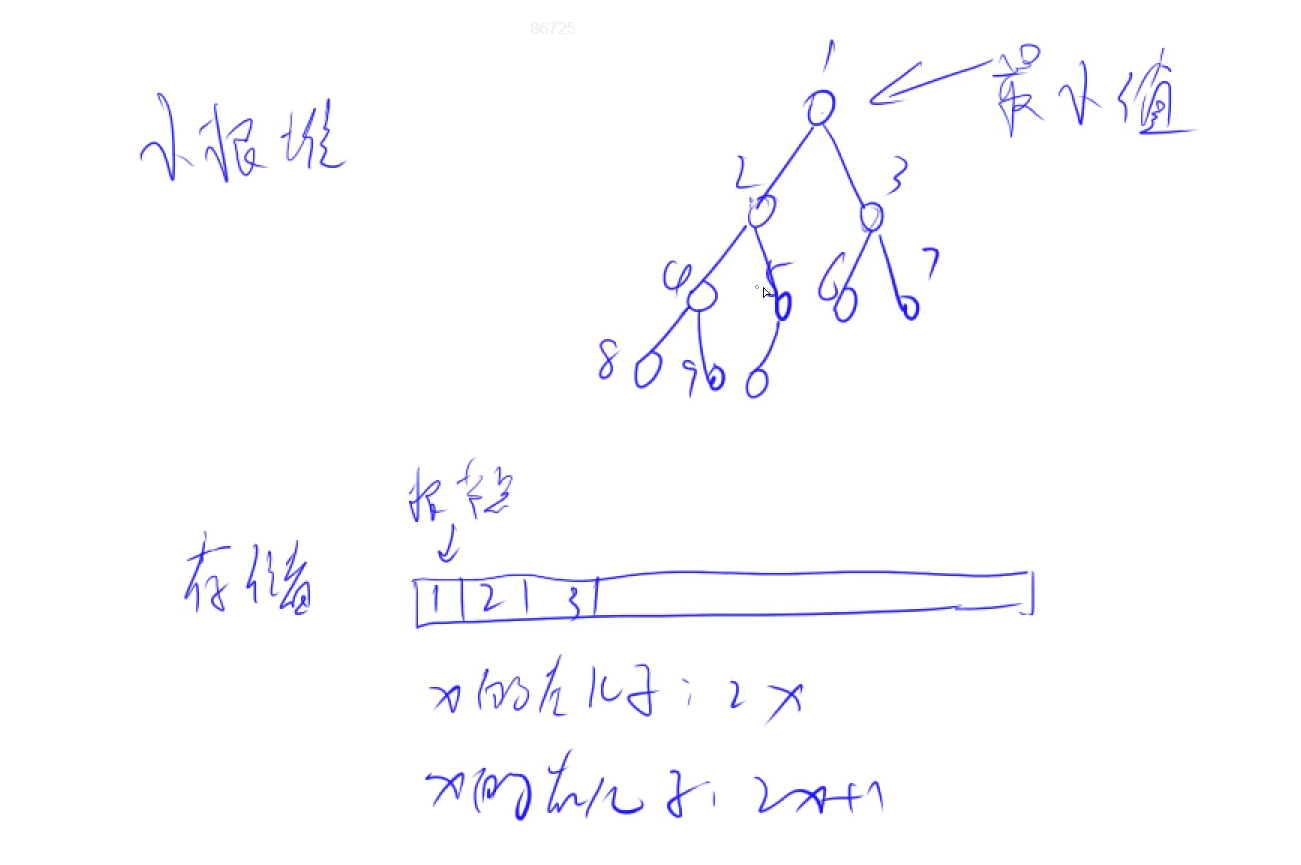 86725
小根堆
最小值
1
2
3
4
5
6
7
8
9
根节点
存储
1 2 3
x的左儿子: 2x
x的右儿子: 2x+1